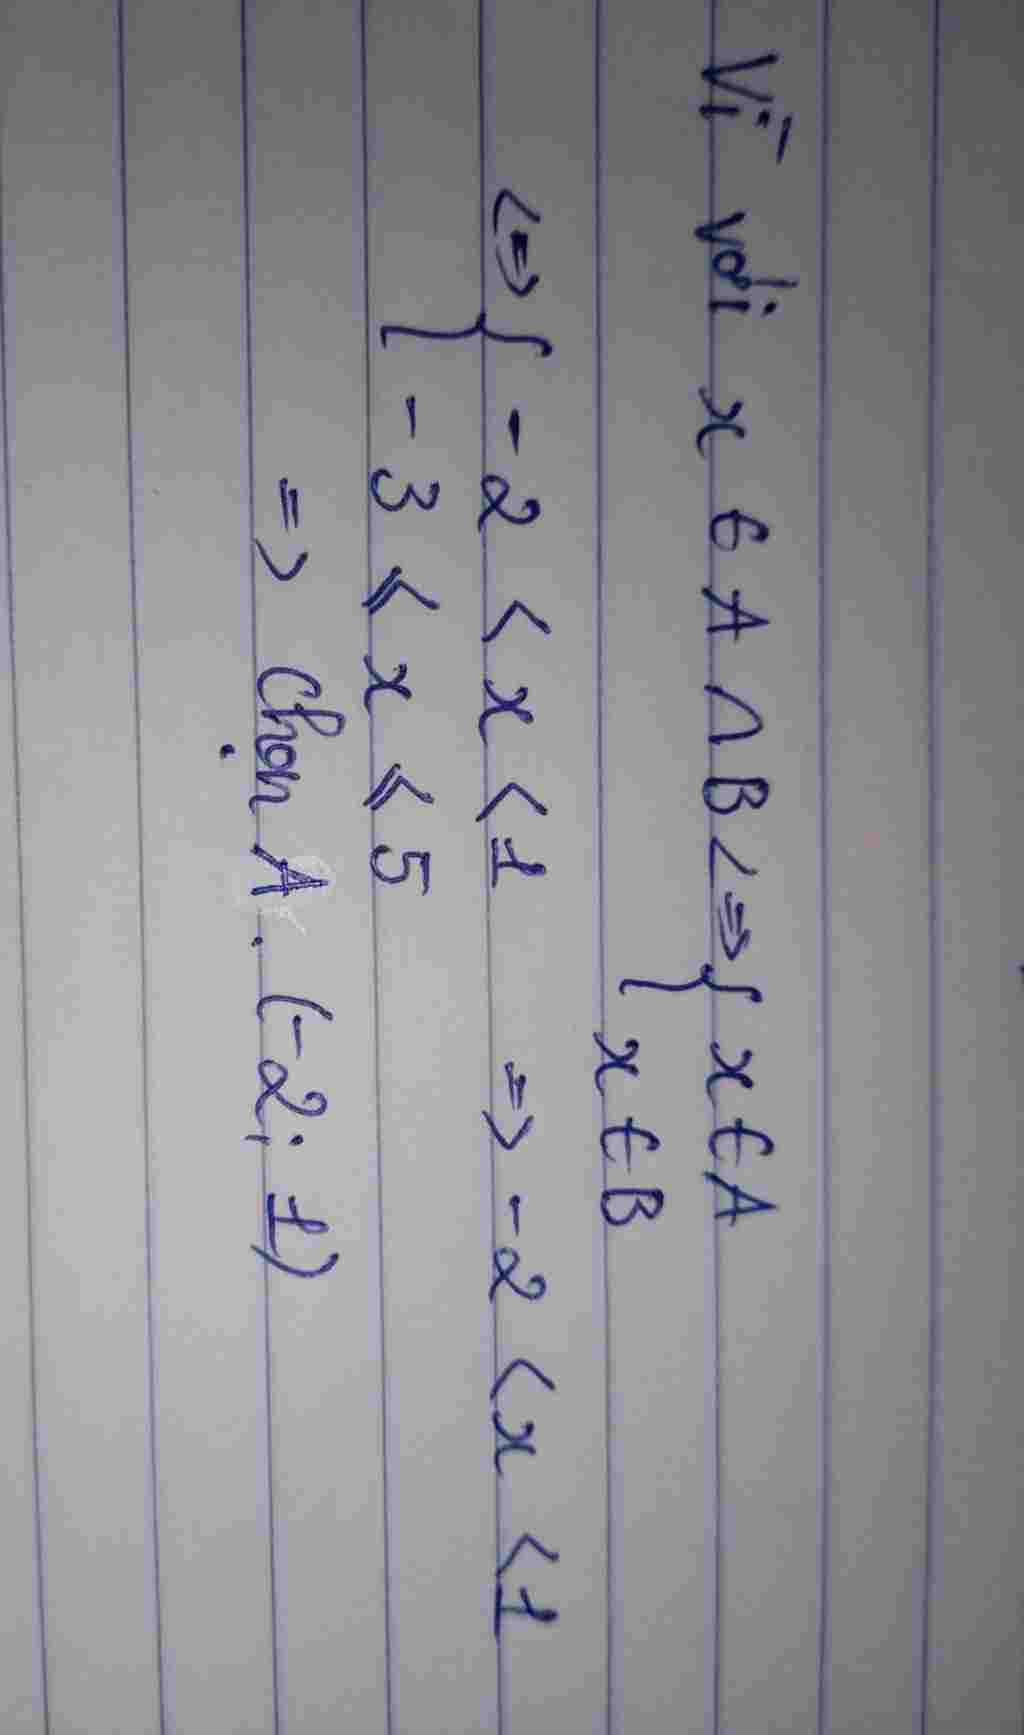 Vì với x ∈ A ∩ B <=> { x ∈ A
x ∈ B
<=> { -2 < x < 1 => -2 < x < 1
-3 ⩽ x ⩽ 5
=> Chọn A. (-2; 1)